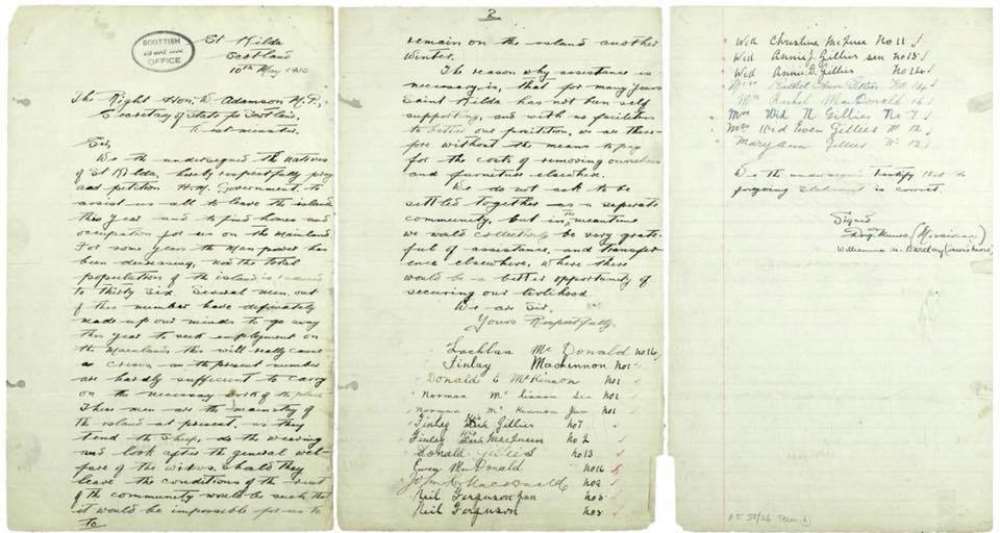 SCOTTISH
OFFICE
St Kilda
Scotland
10th May 1930
The Right Hon. W. Adamson M.P.,
Secretary of State for Scotland,
Westminster.
Sir,
We the undersigned the natives
of St Kilda, hereby respectfully pray
and petition H.M. Government to
assist us all to leave the island
this year and to find homes and
occupation for us on the mainland.
For some years the man power has
been decreasing, now the total
population of the island is reduced
to thirty six. Several men out
of this number have definately
made up our minds to go away
this year to seek employment on
the mainland this will really cause
a crisis as the present number
are hardly sufficient to carry
on the necessary work of the place.
These men are the mainstay of
the island at present, as they
tend the sheep, do the weaving
and look after the general wel-
fare of the widows. Should they
leave the conditions of the rest
of the community would be such that
it would be impossible for us to
2
remain on the island another
winter.
The reason why assistance is
necessary is, that for many years
Saint Kilda has not been self
supporting, and with no facilities
to better our position, we are there-
fore without the means to pay
for the costs of removing ourselves
and furniture elsewhere.
We do not ask to be
settled together as a separate
community, but in the meantime
we would collectively be very grate-
ful of assistance, and transfer-
ence elsewhere, where there
would be a better opportunity of
securing our livelihood.
We are Sir,
Yours Respectfully.
Lachlan Mc Donald no 16
Finlay MacKinnon no 1
Donald E McKinnon no 1
Norman Mc Kinnon Sen no 1
Norman Mc Kinnon Jun no 1
Finlay Gillies no 7
Finlay MacQueen no 2
Donald Gillies no 13
Ewen McDonald no 16
John MacDonald
Neil Ferguson Jun no 5
Neil Ferguson
Wid Christina McQueen No 11
Wid Annie Gillies sen no 15
Wid Annie Gillies
Mrs Rachel MacDonald 16
Mrs Wid N Gillies No 7
Mrs Wid Ewen Gillies No 12
Mary Ann Gillies No 12
We the undersigned testify that the
forgoing statement is correct.
Signed
Dugd. Munro (Missionary)
Williamina A. Barclay (Queen's Nurse)